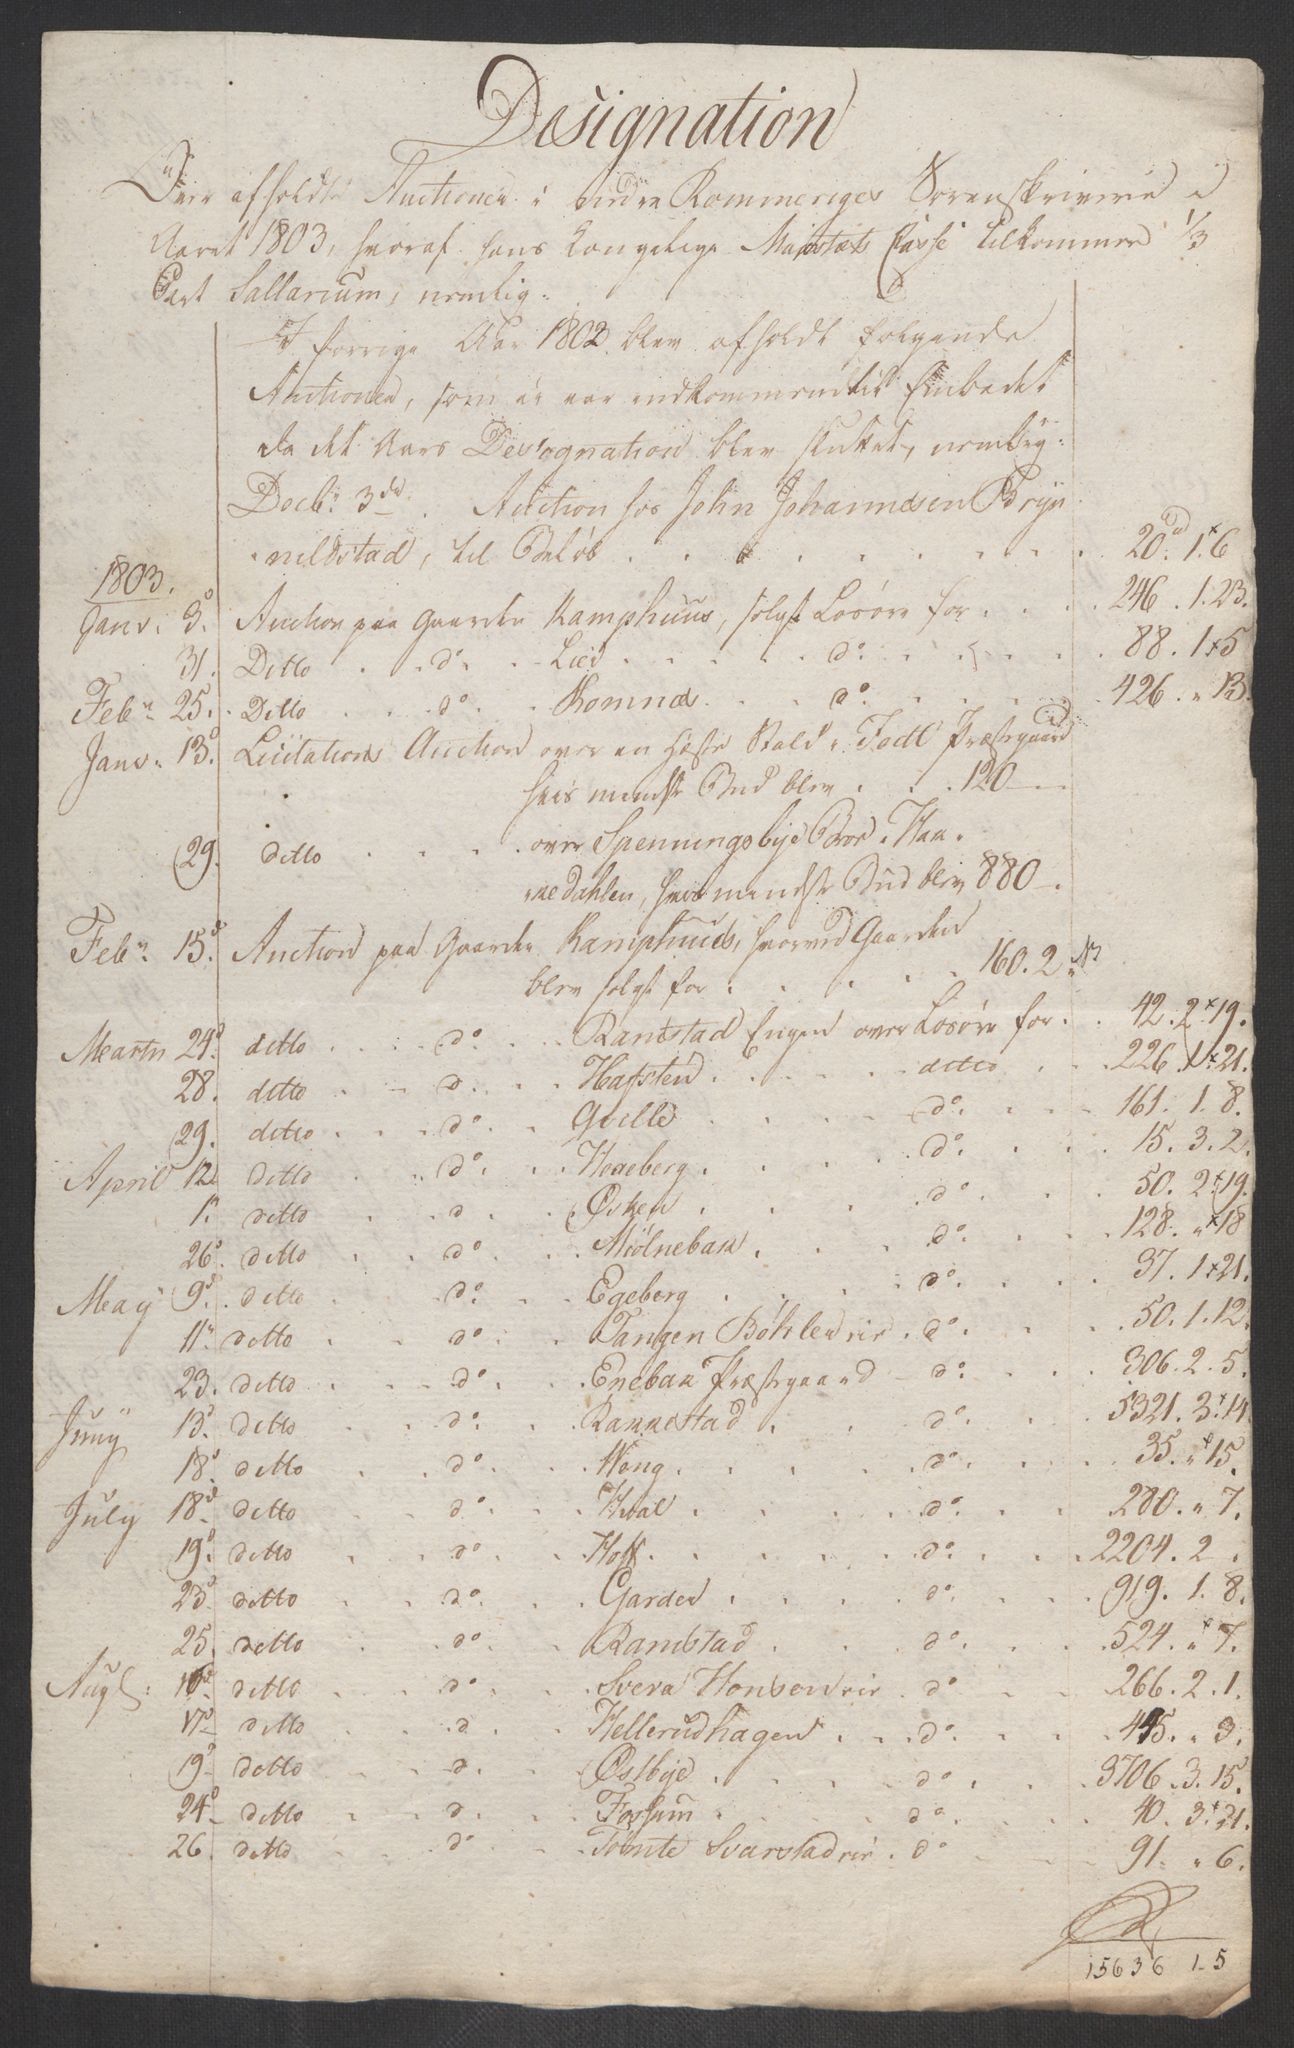 Designation
Over afholdte Auctioner i Nedre Rommeriges Sorenskriverie i
Aaret 1803, hvoraf hans Kongelige Majestæts Casse tilkommer 1/3
Part Sallarium, nemlig:
I forrige Aar 1802 blev afholdt følgende
Auctioner, som ei var indkommen til Embedet
da det Aars Designation blev sluttet, nemlig:
Decbr 3de. Auction hos John Johannesen Bryn
nildstad, til Beløb . . . 20rd 1. 6
1803.
Janv. 3d. Auction paa Gaarden Kamphuus, solgt Losøre for . . . 246. 1. 23.
31. Ditto . . do . . Lied . . . do . . . 88. 1 5
Febr. 25. Ditto . . do . . Komnæs . . . do . . . 426. " 13.
Janv. 13d. Licitations Auction over en Heste Stald i Fedt Præstegaard
hvis mindste Bud blev . . . 120 —
29. ditto . . . over Spenningsbye Broe i Haa-
nedahlen, hvis mindste Bud blev 880 —.
Febr. 15d. Auction paa Gaarden Kamphuus, hvorved Gaarden
blev solgt for . . . 160. 2
Martii 24d ditto . . do . . Ramstad Engen over Losøre for . . 42. 2. 19.
28. ditto . . d. . . Hafsten . . . ditto . . 226. 1. 21.
29. ditto . . do . . Qville . . . do . . 161. 1. 8.
April 12. ditto . . do . . Heaeberg . . . do . . 15. 3. 2.
1. ditto . . d . . Østen . . . do . . 50. 2. 19.
26d. ditto . . do . . Miölnebak . . . do . . 128. " 18
May 9d. ditto . . do . . Egeberg . . . do . . 37. 1. 21.
11. ditto . . do . . Tangen Böhler eie . do . . 50. 1. 12.
23. ditto . . do . . Enebak Præstegaard — do . . 306. 2. 5.
Juny 13d ditto . . do . . Rannestad . . do . . 5321. 3. 14
18d. ditto . . do . . Wæng . . . do . . 35. " 15.
July 18d. ditto . . do . . Hval . . . do . . 280. " 7.
19d. ditto . . do . . Hoff . . . do . . 2204. 2 .
23d. ditto . . do . . Garder . . . do . . 919. 1. 8.
25. ditto . . do . . Ramstad . . . do . . 524. " 7.
Augs: 16d. ditto . . do . . Svera Honsen eie . do . . 266. 2. 1.
17d ditto . . d. . . Hellerudhagen . . do . . 445. " 3.
19d ditto . . d. . . Østbye . . . do . . 3706. 3. 15.
24d ditto . . d. . . Fossum . . . do . . 40. 3. 21.
26. ditto . . do . . Tomte Svarstad eie . do . . 91. " 6.
15636 1-5